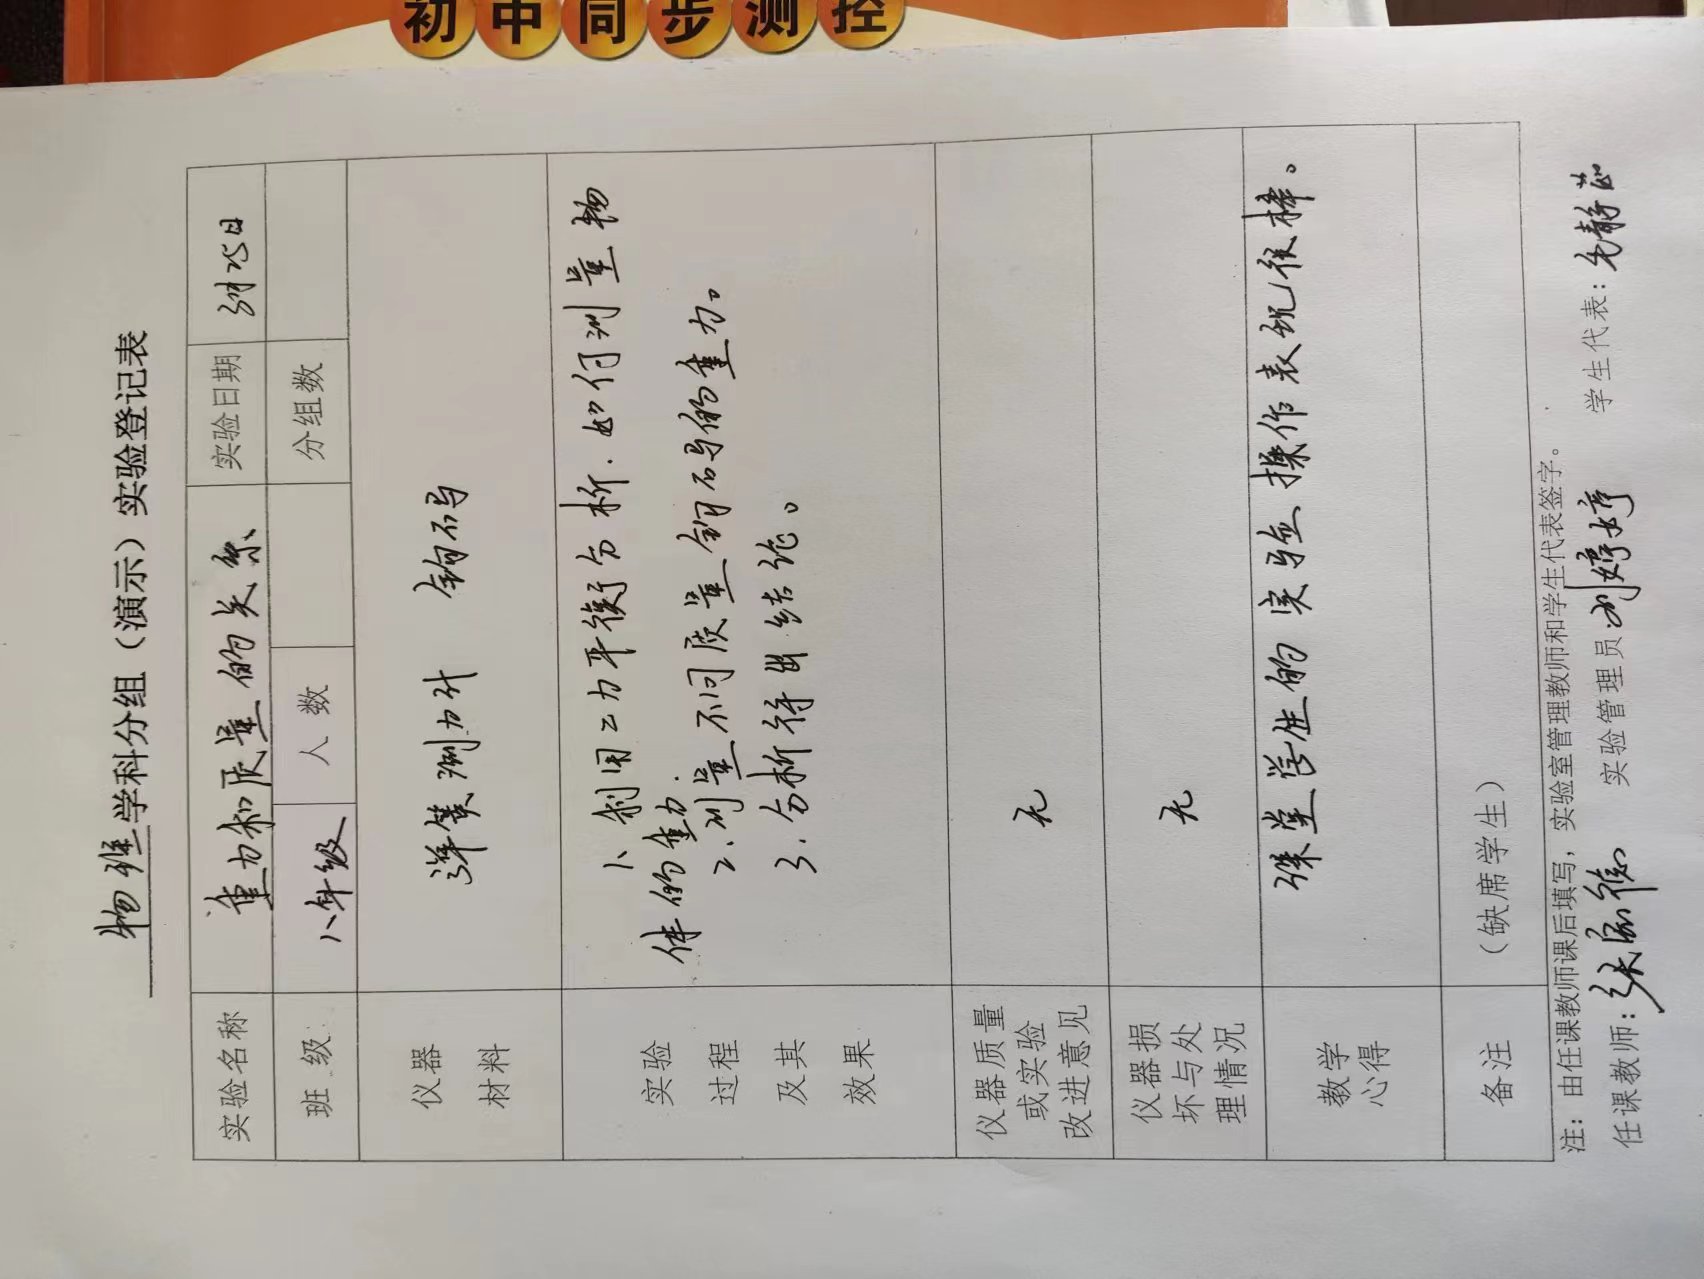 初中同步测控
物理学科分组（演示）实验登记表
实验名称 重力和质量的关系 实验日期 3月25日
班 级 八年级 人 数 分组数
仪器材料 弹簧测力计 钩码
实验过程及其效果
1、利用二力平衡分析.如何测量物
体的重力.
2.测量不同质量钩码的重力。
3.分析得出结论。
仪器质量或实验改进意见 无
仪器损坏与处理情况 无
教学心得 课堂学生的实验操作表现很棒。
备注 （缺席学生）
注：由任课教师课后填写，实验室管理教师和学生代表签字。
任课教师： 实验管理员：刘婷婷 学生代表：